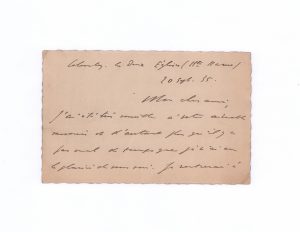 Colombey les Deux Eglises (Hte Marne)
20 Sept. 35.
Mon cher ami,
J'ai été très sensible à votre aimable
et d'autant plus qu'il y a
pas mal de temps que je n'ai eu
le plaisir de vous voir. Je rentrerai à